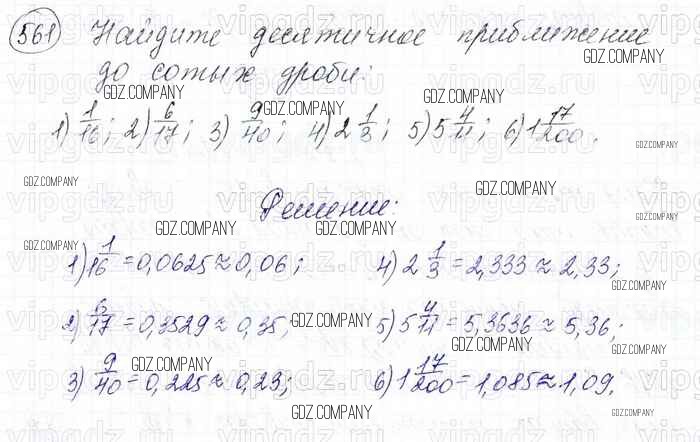 561 Найдите десятичное приближение
до сотых дроби:
1) 1/16; 2) 6/17; 3) 9/40; 4) 2 1/3; 5) 5 4/11; 6) 1 17/200.
Решение:
1) 1/16 = 0,0625 ≈ 0,06; 4) 2 1/3 = 2,333 ≈ 2,33;
2) 6/17 = 0,3529 ≈ 0,35; 5) 5 4/11 = 5,3636 ≈ 5,36;
3) 9/40 = 0,225 ≈ 0,23; 6) 1 17/200 = 1,085 ≈ 1,09.
GDZ.COMPANY
vipgdz.ru